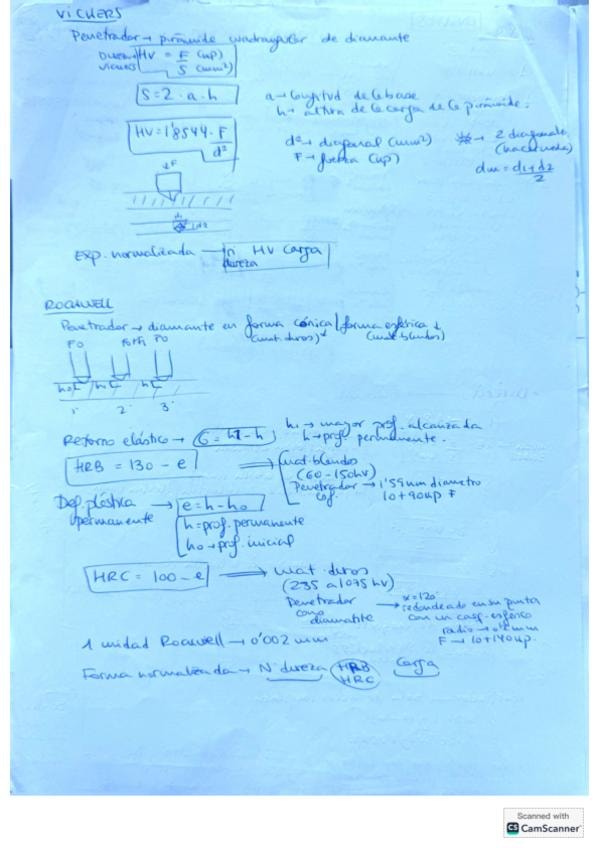 VICKERS
Penetrador → pirámide cuadrangular de diamante
Dureza Vickers HV = F (up) / S (mm²)
S = 2 · a · h
a → longitud de la base
h → altura de la carga de la pirámide.
HV = 1'8544 · F / d²
d² → diagonal (mm²)
F → fuerza (up)
→ 2 diagonales
dm = d1 + d2 / 2
↓F
d1
d2
Exp. normalizada → n HV carga
dureza
ROCKWELL
Penetrador → diamante en forma cónica / forma esférica ↓
(mat. duros) (mat. blandos)
F0 F0+F1 F0
1 2 3
Retorno elástico → = h1 - h
h1 → mayor prof. alcanzada
h → prof. permanente.
HRB = 130 - e ⟹ mat. blandos
(60 - 150hv)
Penetrador → 1'59 mm diametro
10 + 90up F
Def. plástica permanente → e = h - h0
h = prof. permanente
h0 → prof. inicial
HRC = 100 - e ⟹ mat. duros
(235 a 1075 hv)
Penetrador cono diamante → α=120°
redondeado en su punta
con un casq. esférico
radio → 0'2 mm
F → 10 + 140up.
1 unidad Rockwell → 0'002 mm
Forma normalizada → Nº dureza HRB HRC Carga
Scanned with
CS CamScanner